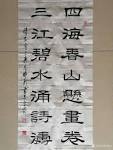 四海青山懸畫卷
三江碧水涌詩濤